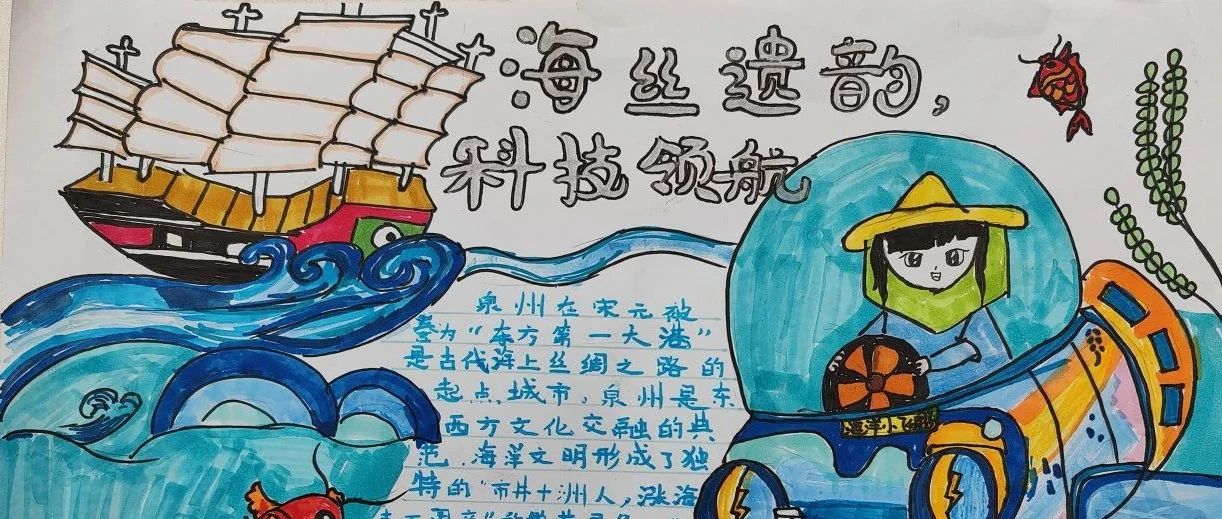 海丝遗韵,
科技领航
泉州在宋元被
誉为"东方第一大港"
是古代海上丝绸之路的
起点城市,泉州是东
西方文化交融的典
范,海洋文明形成了独
特的"市井十洲人,涨海
海洋小飞